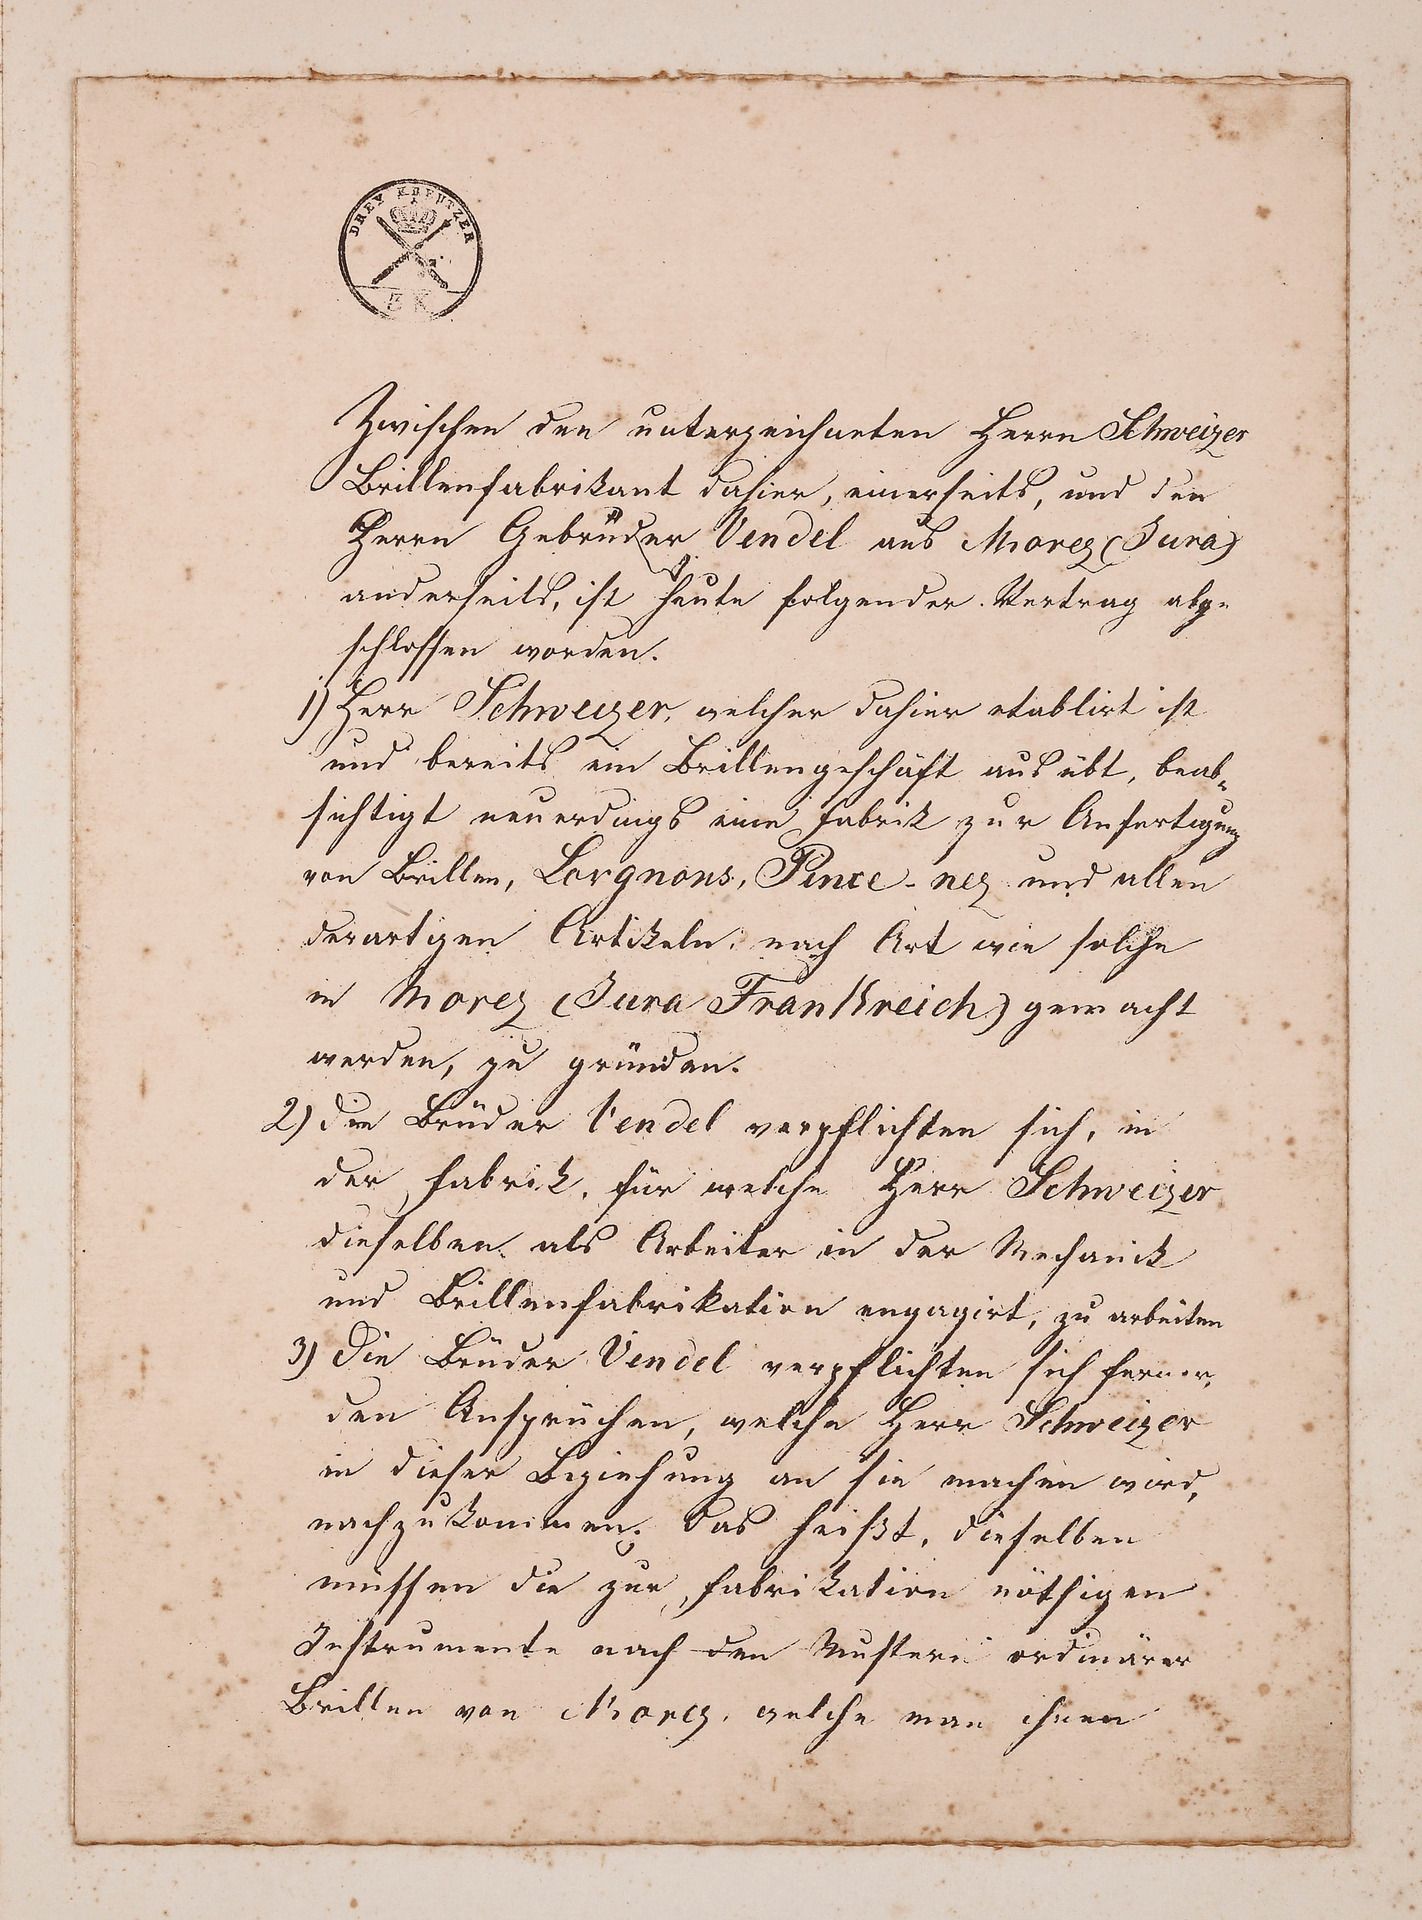 DREY KREUTZER
3 K
Zwischen den unterzeichneten Herrn Schweizer
Brillenfabrikant dahier, einerseits, und den
Herrn Gebrüder Vendel aus Morez (Jura)
anderseits, ist heute folgender Vertrag abge-
schlossen worden.
1) Herr Schweizer, welcher dahier etablirt ist
und bereits ein Brillengeschäft ausübt, beab-
sichtigt neuerdings eine Fabrik zur Anfertigung
von Brillen, Lorgnons, Pince-nez und allen
derartigen Artikeln, nach Art wie solche
in Morez (Jura Frankreich) gemacht
werden, zu gründen.
2) Die Brüder Vendel verpflichten sich, in
der Fabrik, für welche Herr Schweizer
dieselben als Arbeiter in der Mechanik
und Brillenfabrikation engagirt, zu arbeiten
3) Die Brüder Vendel verpflichten sich ferner,
den Ansprüchen, welche Herr Schweizer
in dieser Beziehung an sie machen wird,
nachzukommen; Das heißt, dieselben
müssen die zur Fabrikation nöthigen
Instrumente nach den Mustern ordinärer
Brillen von Morez, welche man ihnen